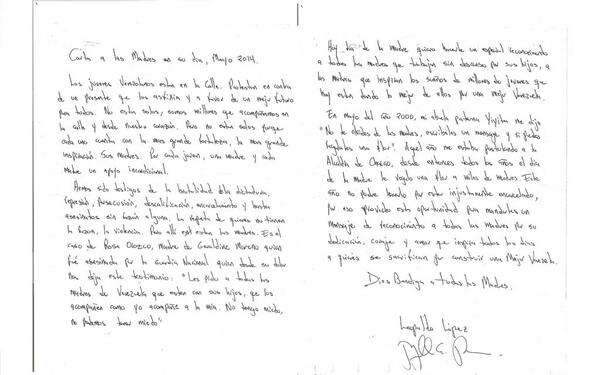 Carta a las Madres en su día, Mayo 2014.
Los jovenes Venezolanos estan en la Calle. Protestan en contra
de un presente que los asfixia y a favor de un mejor futuro
para todos. No estan solos, somos millones que acompañamos en
la calle y desde nuestro corazón. Pero no estan solos porque
cada uno cuenta con la mas grande fortaleza, la mas grande
inspiración. Sus madres. Por cada joven, una madre y cada
madre un apoyo incondicional.
Hemos sido testigos de la brutalidad de la dictadura,
represión, persecusión, descalificación, encarcelamiento y hasta
asesinatos sin razón alguna. La repuesta de quienes no tienen
la razon, la violencia. Pero allí estan las madres. Es el
caso de Rosa Orozco, madre de Geraldine Moreno quien
fué asesinada por la Guardia Nacional quien desde su dolor
nos dejó este testimonio: "Les pido a todas las
madres de Venezuela que esten con sus hijos, que los
acompañen como yo acompañe a la mía. No tengo miedo,
no podemos tener miedo"
Hoy dia de la madre quiero hacerle un especial reconocimiento
a todas las madres que trabajan sin descanso por sus hijos, a
las madres que inspiran los sueños de millones de jovenes que
hoy estan dando lo mejor de ellos por una mejor Venezuela.
En mayo del año 2000, mi abuela paterna Yiyita me dijo
"No te olvides de las madres, escribeles un mensaje y si puedes
regalales una flor". Aquel año me estaba postulando a la
Alcaldía de Chacao, desde entonces todos los años el día
de la madre le regalo una flor a miles de madres. Este
año no podre hacerlo por estar injustamente encarcelado,
por eso aprovecho esta oportunidad para mandarles un
mensaje de reconocimiento a todas las madres por su
dedicación, coraje y amor que inspira todos los dias
a quienes se sacrifican por construir una Mejor Vnzla.
Dios Bendiga a todas las Madres.
Leopoldo López